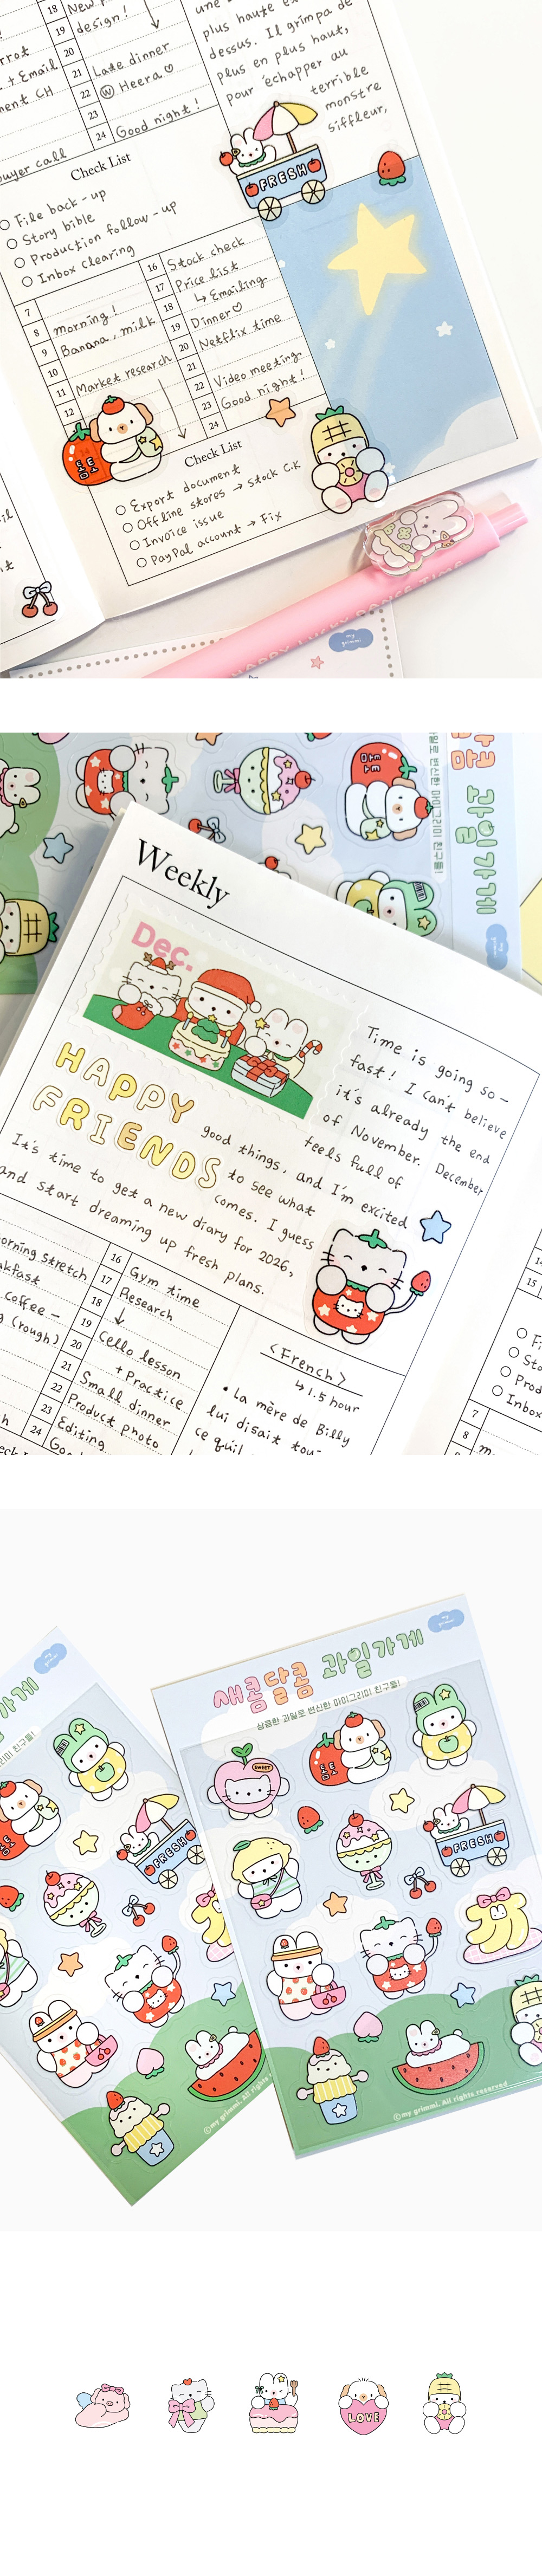 18
New
design!
19
20
rrot
. + Email
21
Late dinner
ment CH
22
ⓦ Heera ♡
23
24
Good night!
buyer call
plus haute
dessus. Il grimpa de
plus en plus haut,
pour échapper au
terrible
monstre
siffleur,
FRESH
Check List
File back-up
Story bible
Production follow-up
Inbox clearing
7
8 morning!
9 Banana, milk
10
11 Market research
12
16 Stock check
17 Price list
18 ↳ Emailing
19 Dinner♡
20 Netflix time
21
22 Video meeting
23 Good night!
24
토마토
Check List
Export document
Offline stores → Stock C.K
Invoice issue
PayPal account → Fix
HAPPY LUCKY DANCE TIME
my grimmi
과일가게
과일로 변신한 마이그리미 친구들!
Weekly
Dec.
HAPPY
FRIENDS
Time is going so –
fast! I can't believe
it's already the end
of November. December
feels full of
good things, and I'm excited
to see what
comes. I guess
It's time to get a new diary for 2026,
and start dreaming up fresh plans.
orning stretch
akfast
coffee –
g (rough)
16 Gym time
17 Research
18
19 Cello lesson
20 + Practice
21 Small dinner
22 Product photo
23 Editing
24
<French>
↳ 1.5 hour
• La mère de Billy
lui disait tout
ce qu'il
14
15
7
8
새콤달콤 과일가게
상큼한 과일로 변신한 마이그리미 친구들!
my grimmi
SWEET
토마토
FRESH
FRESH
©my grimmi. All rights reserved
©my grimmi. All rights reserved
LOVE